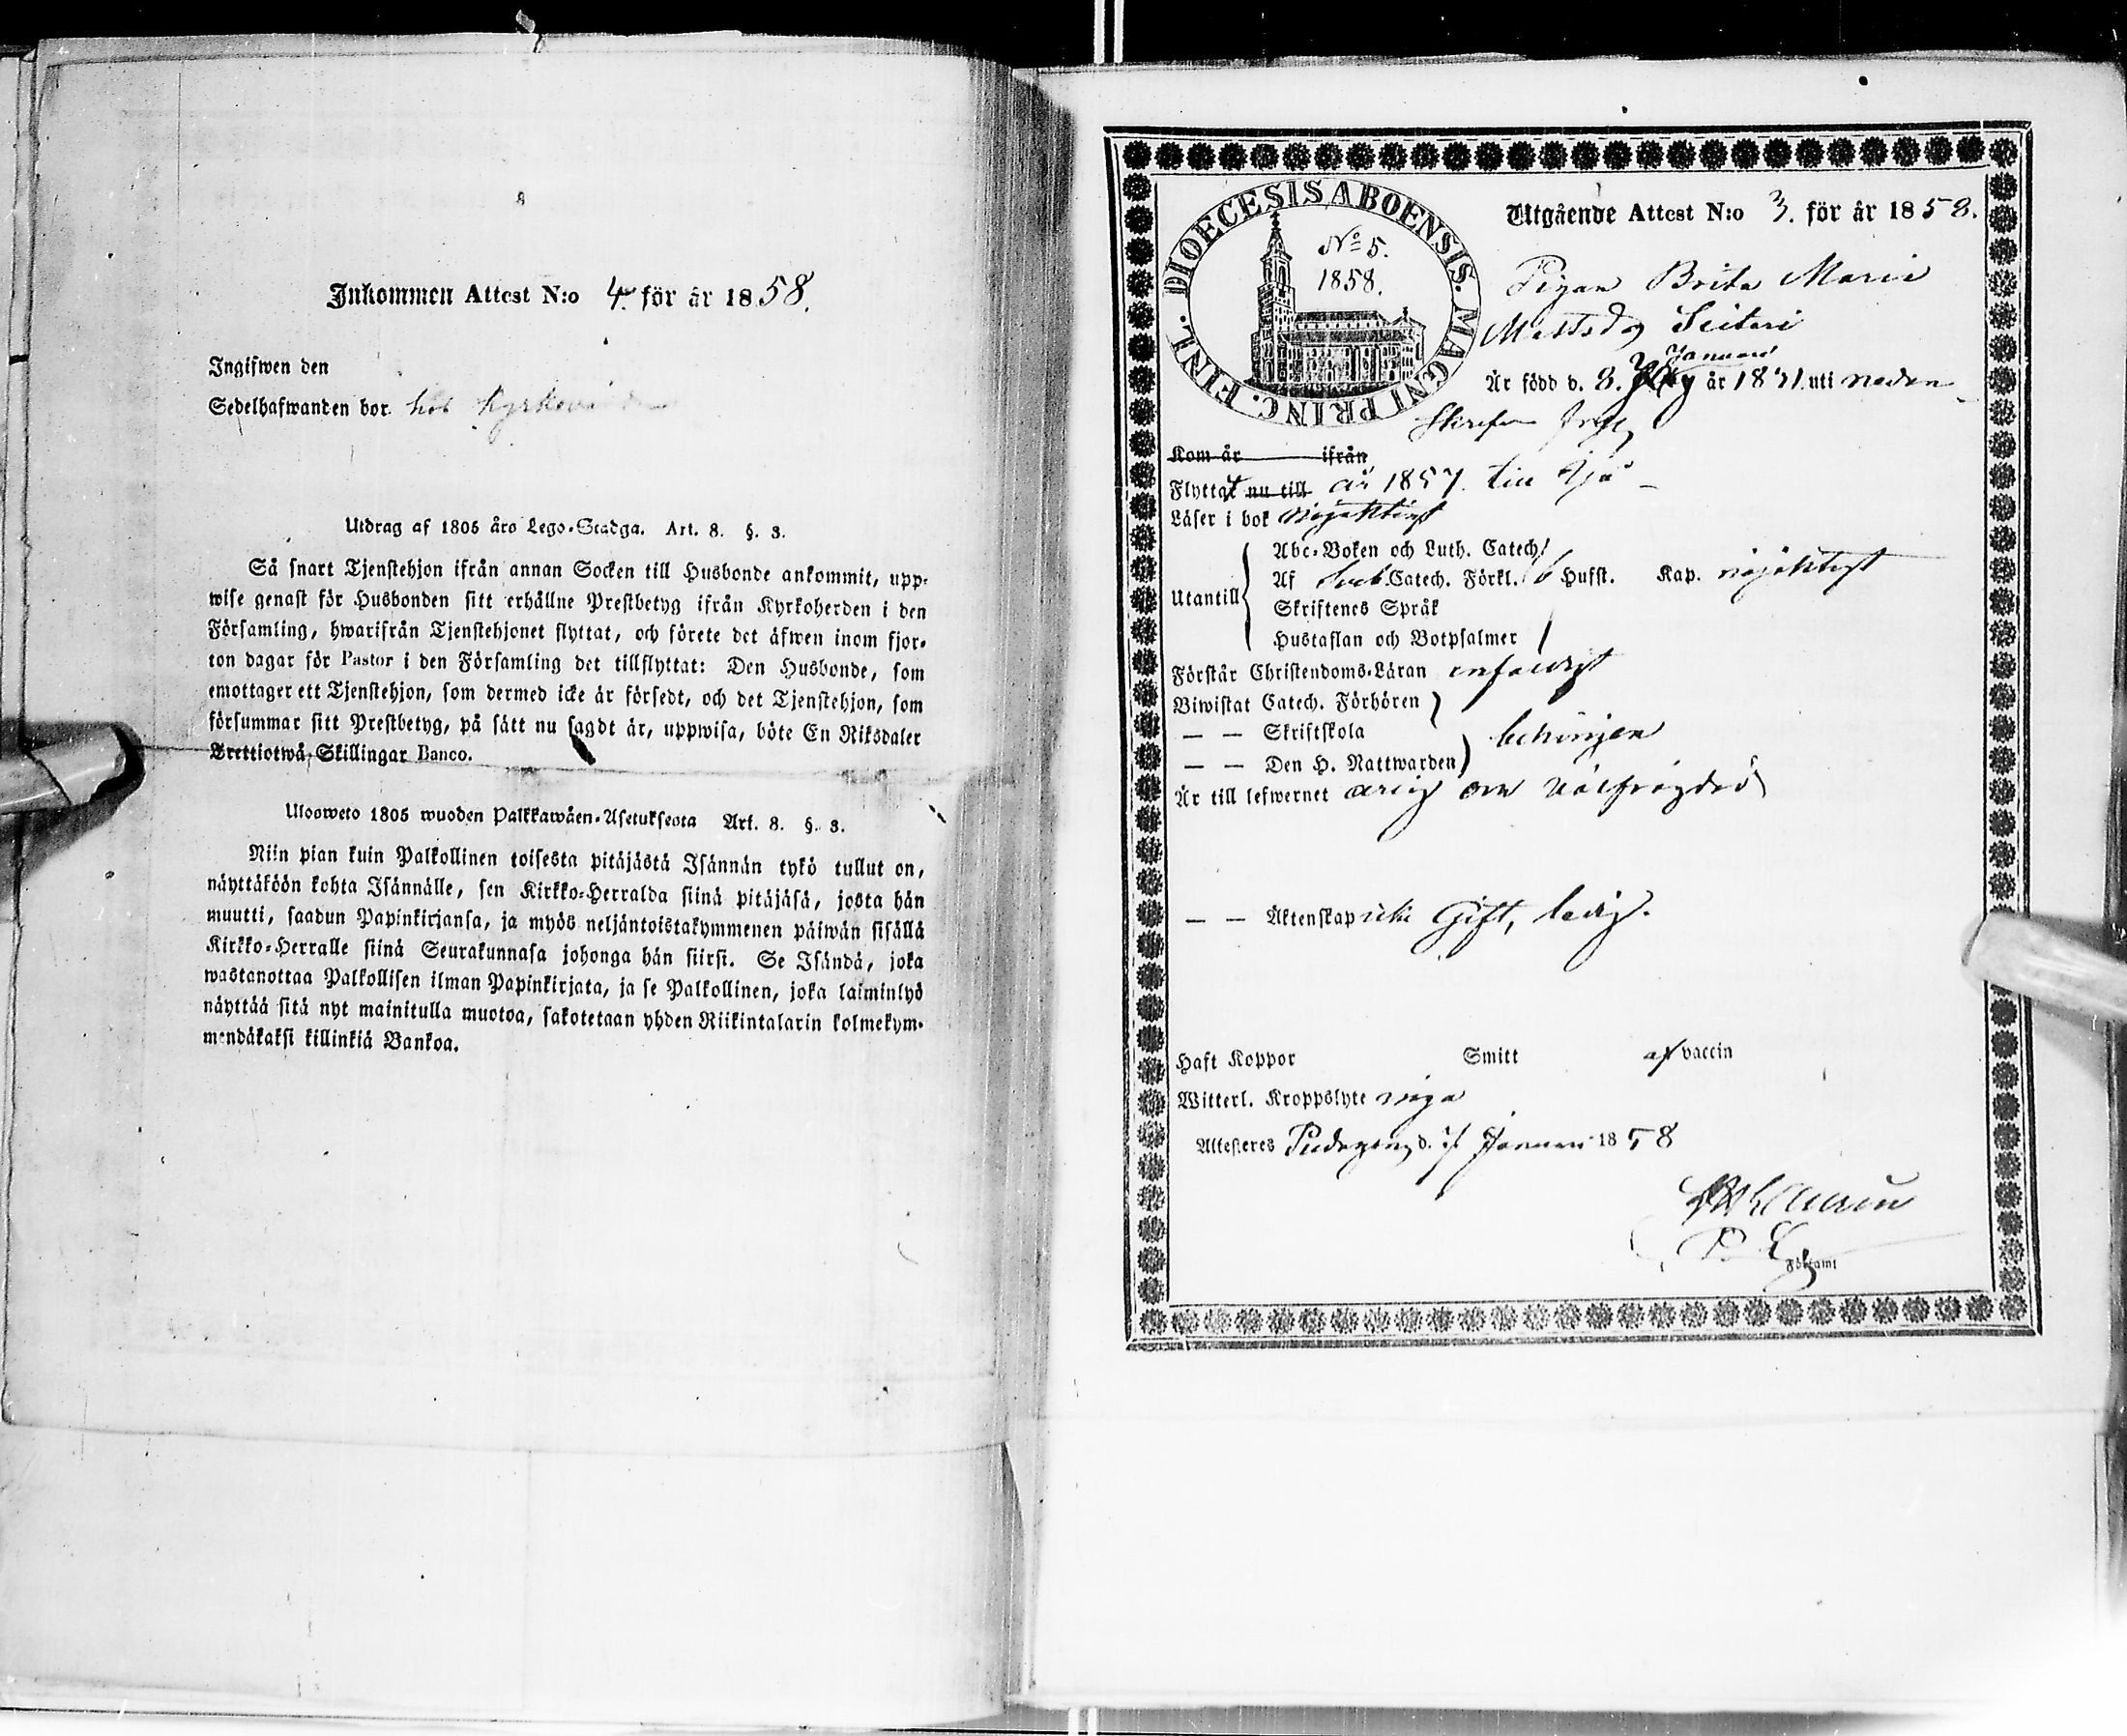 Inkommen Attest N:o 4. för år 1858.
Ingifwen den
Sedelhafwanden bor hos Kyrkovärden
Utdrag af 1805 års Lego-Stadga. Art. 8. §. 3.
Så snart Tjenstehjon ifrån annan Socken till Husbonde ankommit, upp-
wise genast för Husbonden sitt erhållne Prestbetyg ifrån Kyrkoherden i den
Församling, hwarifrån Tjenstehjonet flyttat, och förete det äfwen inom fjor-
ton dagar för Pastor i den Församling det tillflyttat: Den Husbonde, som
emottager ett Tjenstehjon, som dermed icke är försedt, och det Tjenstehjon, som
försummar sitt Prestbetyg, på sätt nu sagdt är, uppwisa, böte En Riksdaler
Trettiotwå Skillingar Banco.
Ulosweto 1805 wuoden Palkkawäen-Asetuksesta Art. 8. §. 3.
Niin pian kuin Palkollinen toisesta pitäjästä Isännän tykö tullut on,
näyttäköön kohta Isännälle, sen Kirkko-Herralda siinä pitäjäsä, josta hän
muutti, saadun Papinkirjansa, ja myös neljäntoistakymmenen päiwän sisällä
Kirkko-Herralle siinä Seurakunnasa johonga hän siirsi. Se Isändä, joka
wastanottaa Palkollisen ilman Papinkirjata, ja se Palkollinen, joka laiminlyö
näyttää sitä nyt mainitulla muotoa, sakotetaan yhden Riikintalarin kolmekym-
mendäkaksi killinkiä Bankoa.
DIOECESIS ABOENSIS. MAGNI PRINC. FINL.
No 5.
1858.
Utgående Attest N:o 3. för år 1858.
Pigan Brita Maria
Mattsdr Seiteri
Januari
Är född d. 8. år 1831 uti nedan-
Kom år ifrån
Flyttat nu till år 1857 till
Läser i bok nöjaktigt
Utantill
Abc-Boken och Luth. Catech.
Af Sveb. Catech. Förkl. 6 Hufst. Kap. nöjaktigt
Skriftenes Språk
Hustaflan och Botpsalmer
Förstår Christendoms-Läran enfaldigt
Biwistat Catech. Förhören
— — Skriftskola behörigen
— — Den H. Nattwarden
Är till lefwernet ärlig och välfrägdad
— — Äktenskap icke Gift, ledig.
Haft Koppor Smitt af vaccin
Witterl. Kroppslyte inga
Attesteres d. Januari 1858
Församl